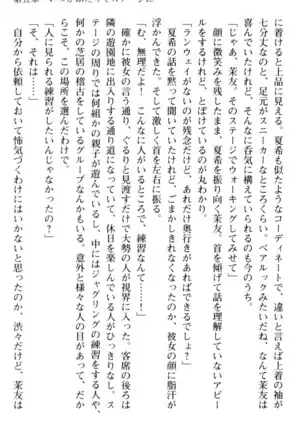 に着けると上品に見える。夏希も似たようなコーディネートで、違いは上着の袖が
七分丈なのと、足元がスニーカーなところくらい。ペアルックみたいだね、なんて茉友は
浮かれるけれど、そんなに呑気に構えていられるのも今のうち。
「じゃあ、茉友。そのステージでウォーキングしてみせて」
顔に微笑みを残したまま、夏希を振り向く茉友。首を傾げて話を理解していないアピー
ルするけれど、とぼけているのが丸わかり。
「ランウェイがないのが残念だけど、あれだけ奥行きがあればできるでしょ？」
夏希の話を黙って聞いていたけれど、ごまかしきれなくなったのか、彼女の顔に脂汗が
浮かんできた。そして激しく首を左右に振る。
「む、無理だよ！　こんなに人がいるところで、練習なんて……！」
確かに彼女の言う通り、ぐるりと見渡すだけで大勢の人が視界に入った。客席の後ろは
隣の遊園地に通り道になっていて、休日を楽しんでいる人がひっきりなし。ス
テージの周りでは何組かの親子が遊んでいるし、中にはジャグリングの練習をする人や、
何かの芝居の稽古をしているグループなんかもいる。意外と様々な人の目があって、だ
からこそ、この場所を選んだわけで。
「人に見られる練習がしたいんじゃなかったの？」
「そ、それは……」
自分から依頼しておいて怖気づくわけにはいかないと思ったのか、渋々だけど、茉友は